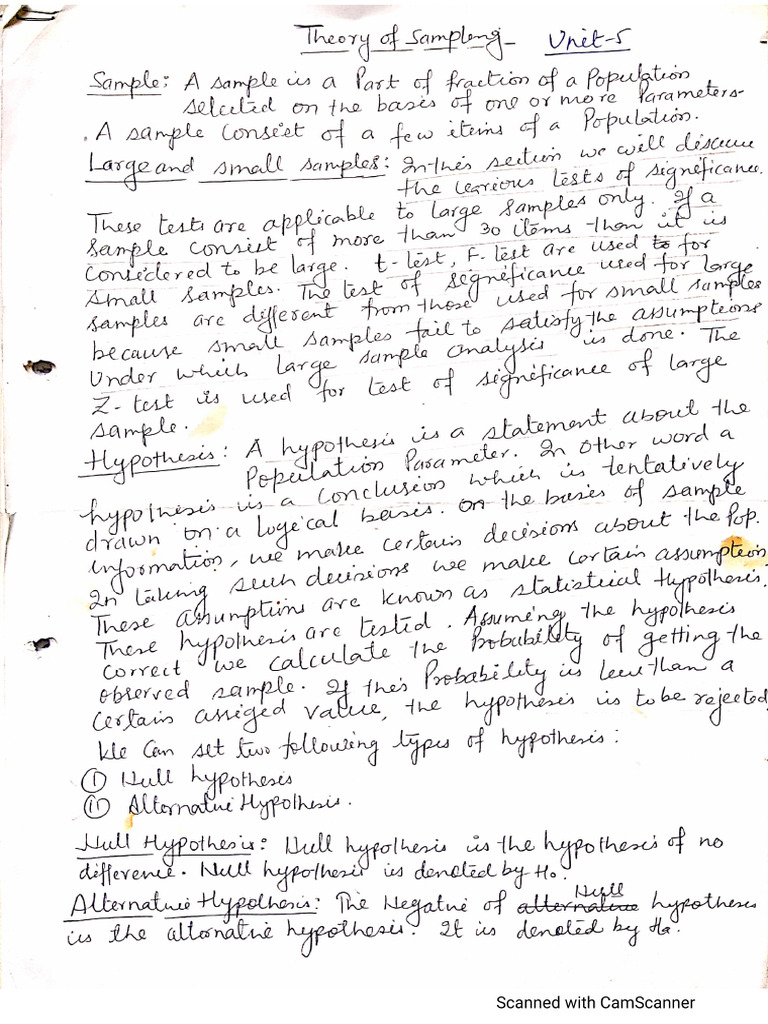 Theory of Sampling Unit-5
Sample: A sample is a Part of fraction of a Population
selected on the basis of one or more Parameters.
A sample consist of a few items of a Population.
Large and small samples: In this section we will discuss
the various tests of significance.
These tests are applicable to large samples only. If a
sample consist of more than 30 items than it is
considered to be large. t-test, F-test are used to for
small samples. The test of significance used for large
samples are different from those used for small samples
because small samples fail to satisfy the assumptions
under which large sample analysis is done. The
Z-test is used for test of significance of large
sample.
Hypothesis: A hypothesis is a statement about the
Population Parameter. In other word a
hypothesis is a conclusion which is tentatively
drawn on a logical basis. on the bases of sample
information, we make certain decisions about the Pop.
In taking such decisions we make certain assumption.
These assumptions are known as statistical Hypothesis.
These hypothesis are tested. Assuming the hypothesis
correct we calculate the Probability of getting the
observed sample. If this Probability is less than a
certain assiged value, the hypothesis is to be rejected.
We can set two following types of hypothesis:
(i) Null hypothesis
(ii) Alternative Hypothesis.
Null Hypothesis: Null hypothesis is the hypothesis of no
difference. Null hypothesis is denoted by H₀.
Alternative Hypothesis: The Negative of alternative Null hypothesis
is the alternative hypothesis. It is denoted by Ha.
Scanned with CamScanner